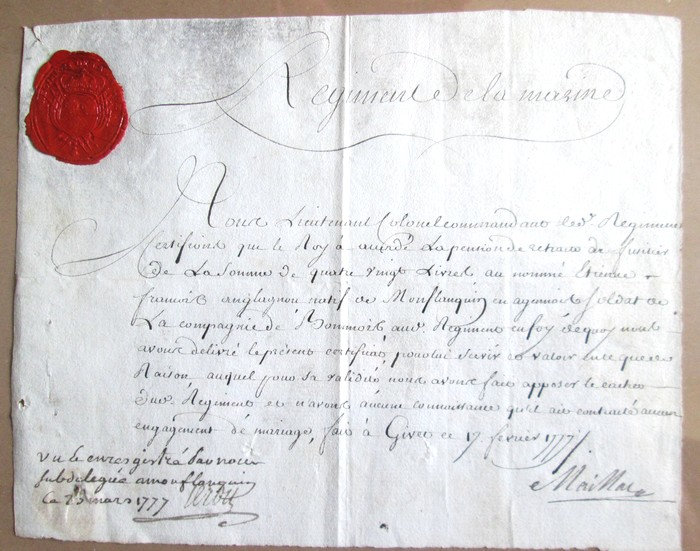 Regiment de la marine
Nous Lieutenant Colonel commandant led.t Regiment
Certifions que le Roy à accordé La pension de retraite de
de La Somme de quatre vingt Livres au nommé Etienne
francois anglagnou natif de Monflanquin en agenois Soldat de
La compagnie de Bommois aud.t Regiment en foy de quoy nous
avons delivré le présent certificat, pour lui servir et valoir ce que de
Raison auquel pour sa validité nous avons fait apposer le cachet
dud.t Regiment et n'avons aucune connaissance qu'il ait contracté aucun
engagement de mariage, fait à Givet ce 17 fevrier 1777
Maillard
vu et enregistré par nous
subdelegué a monflanquin
ce 23 mars 1777